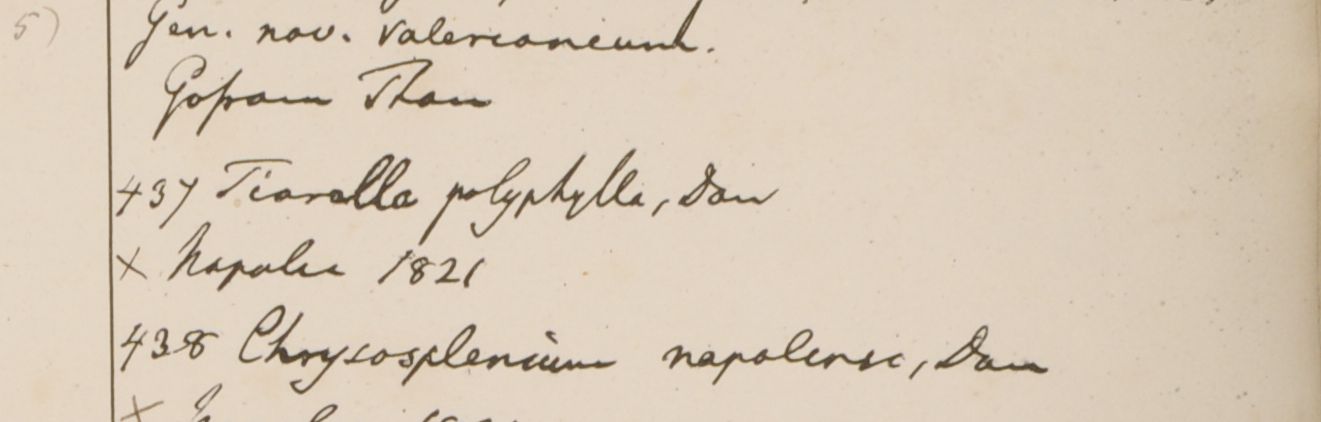 5)
Gen. nov. valerianeum.
Gossain Than
437 Tiarella polyphylla, Don
× Napalia 1821
438 Chrysosplenium napalense, Don
×